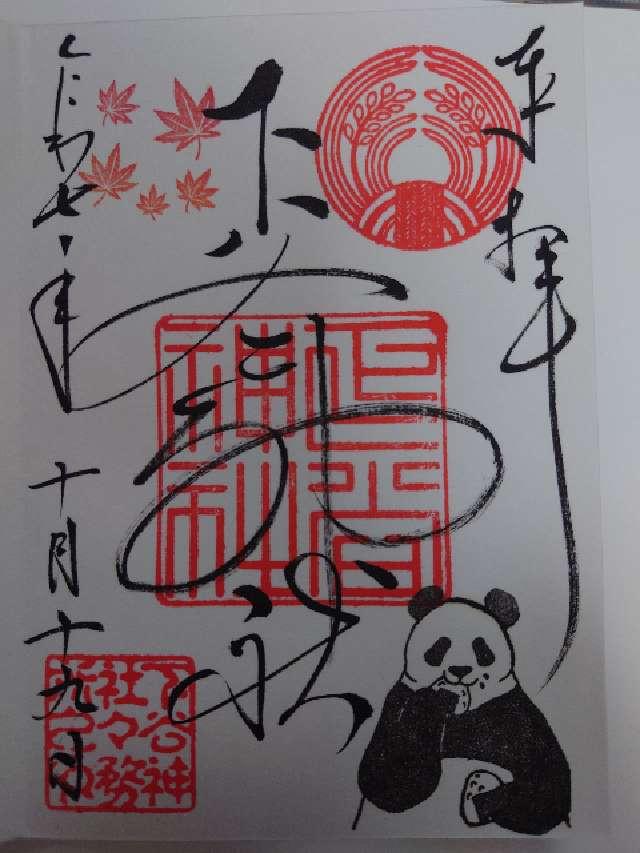 奉拝
下谷神社
令和七年 十月十九日
下谷
神社
下谷神
社々務
所之印